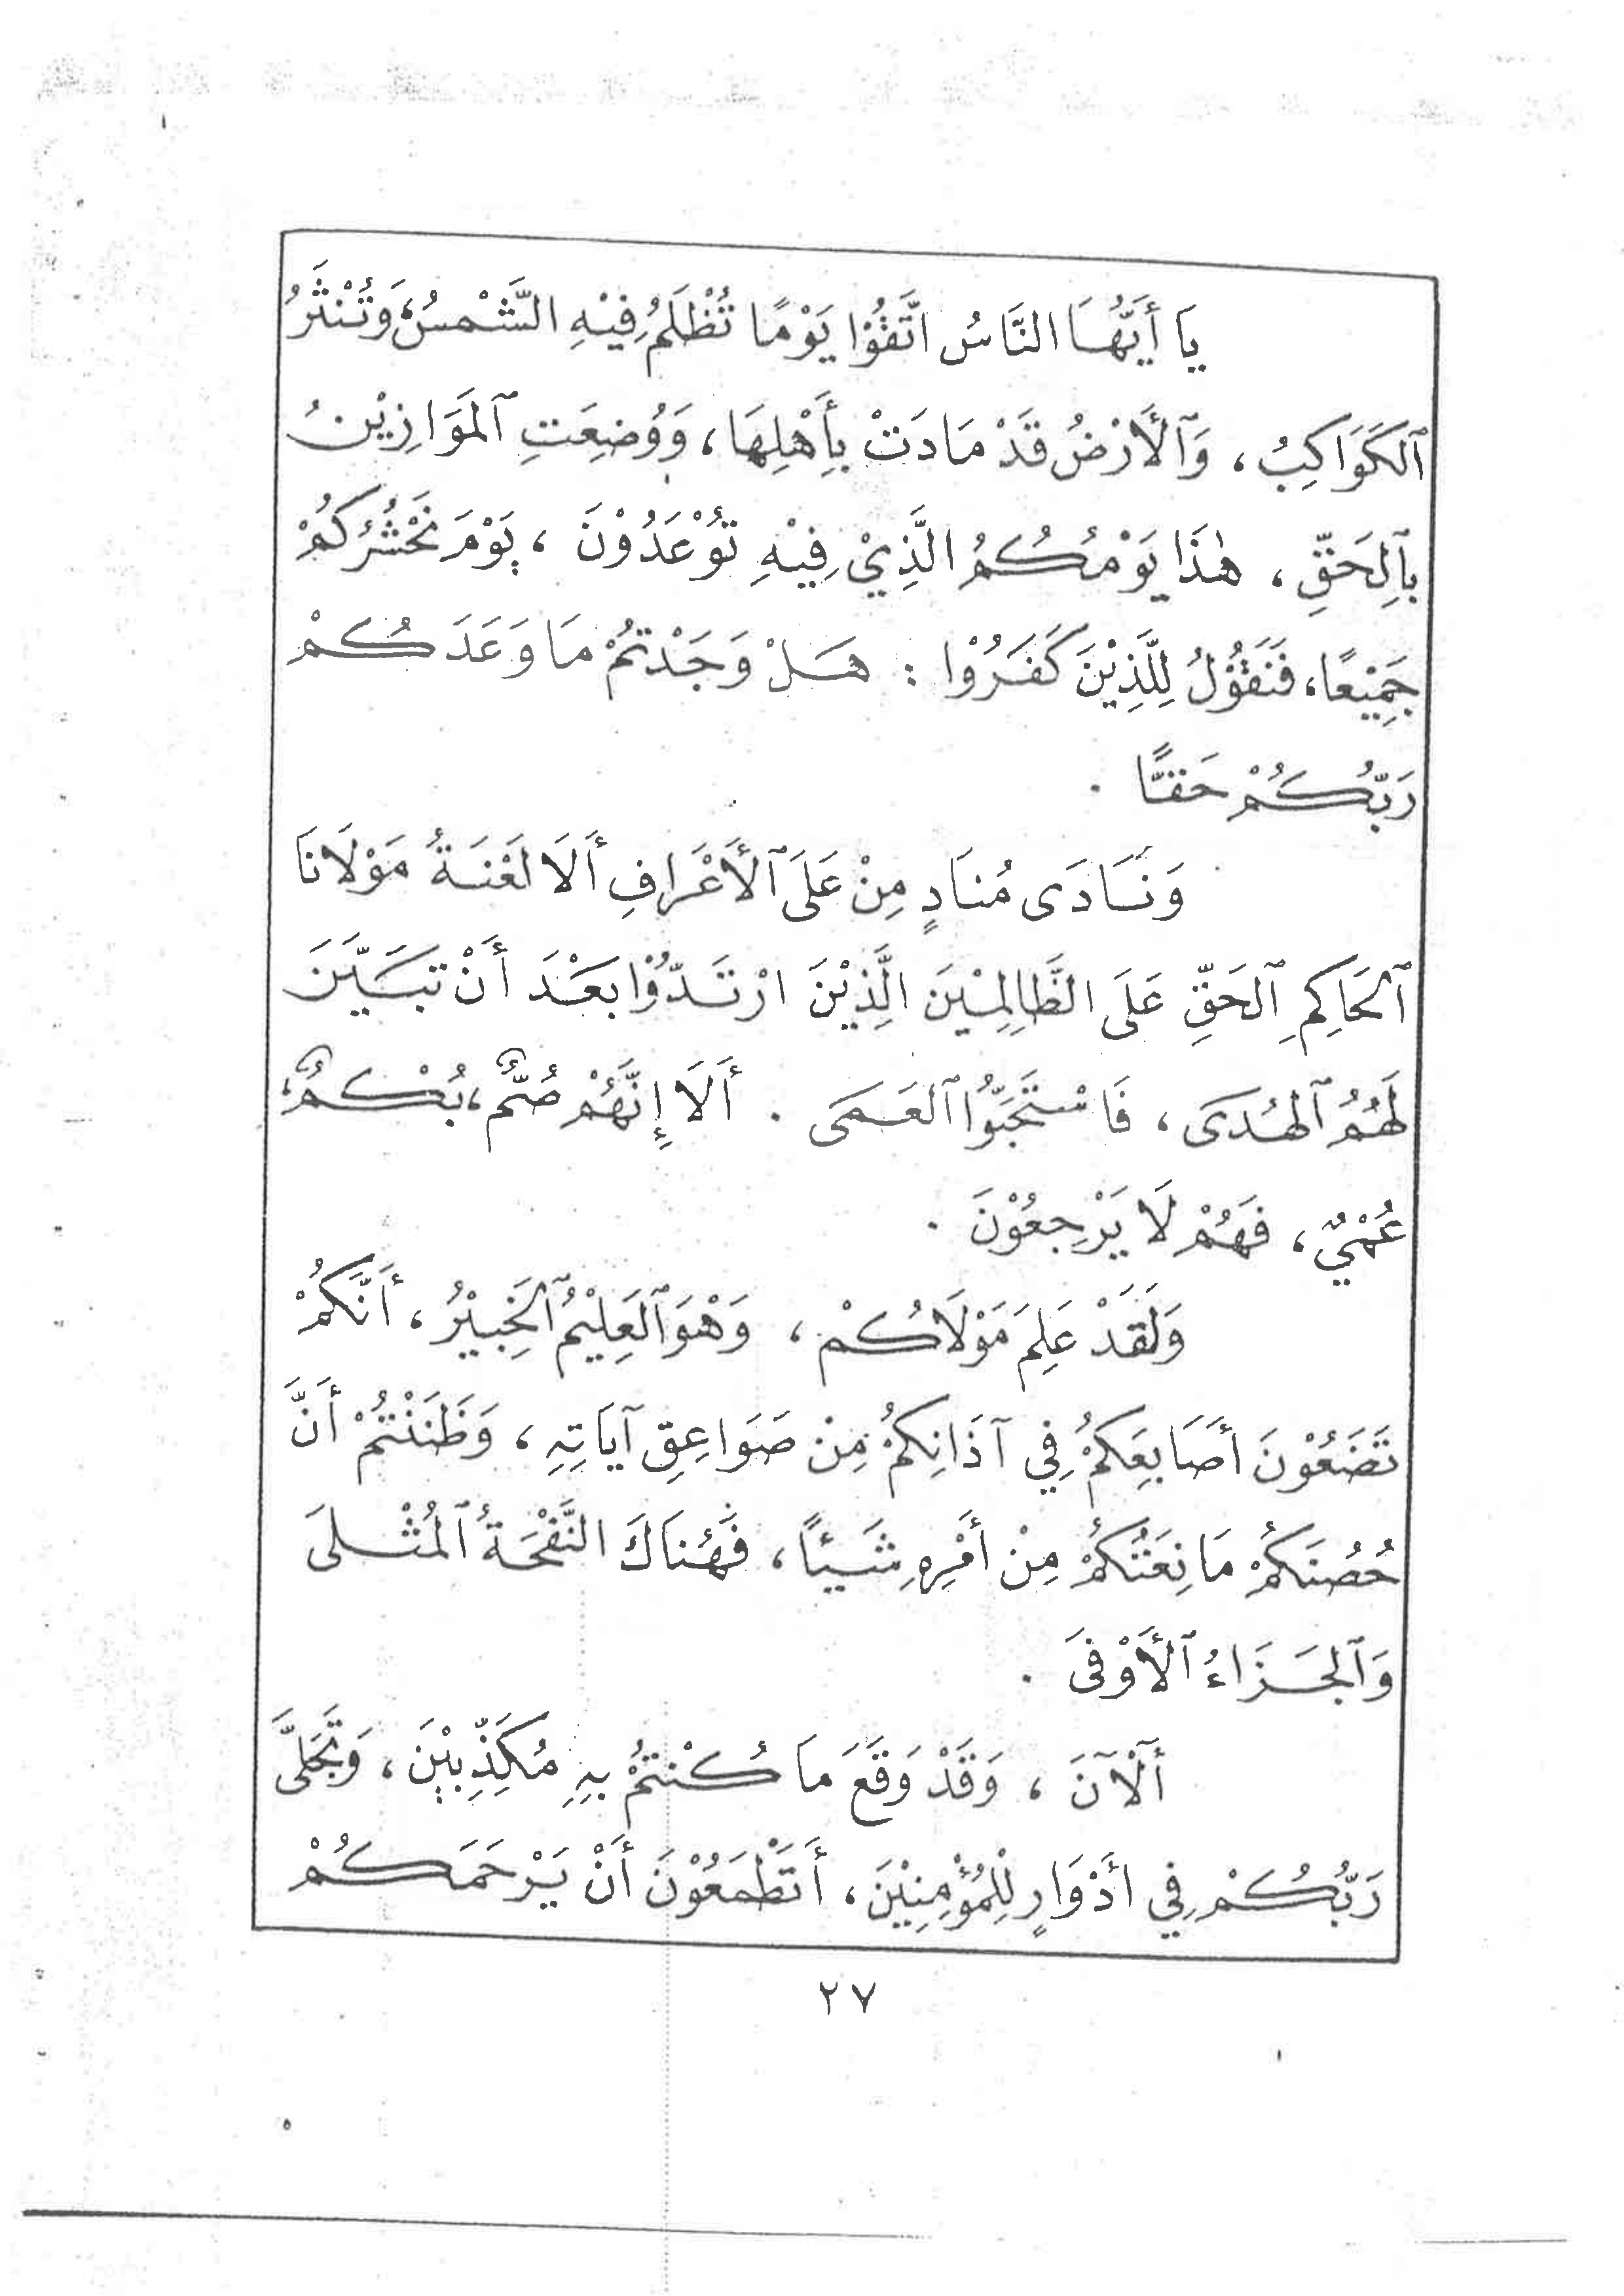 يَا أَيُّهَا النَّاسُ اتَّقُوْا يَوْمًا تُظْلَمُ فِيْهِ الشَّمْسُ، وَتُنْثَرُ
ٱلكَوَاكِبُ، وَٱلأَرْضُ قَدْ مَادَتْ بِأَهْلِهَا، وَوُضِعَتِ ٱلمَوَازِيْنُ
بِٱلحَقِّ، هٰذَا يَوْمُكُمُ الَّذِيْ فِيْهِ تُوْعَدُوْنَ، يَوْمَ نَحْشُرُكُمْ
جَمِيْعًا، فَنَقُوْلُ لِلَّذِيْنَ كَفَرُوْا : هَلْ وَجَدْتُمْ مَا وَعَدَكُمْ
رَبُّكُمْ حَقًّا .
وَنَادَى مُنَادٍ مِنْ عَلَى ٱلأَعْرَافِ أَلَا لَعْنَةُ مَوْلَانَا
ٱلحَاكِمِ ٱلحَقِّ عَلَى الظَّالِمِيْنَ الَّذِيْنَ ارْتَدُّوْا بَعْدَ أَنْ تَبَيَّنَ
لَهُمُ ٱلهُدَى، فَاسْتَحَبُّوا ٱلعَمَى . أَلَا إِنَّهُمْ صُمٌّ، بُكْمٌ،
عُمْيٌ، فَهُمْ لَا يَرْجِعُوْنَ .
وَلَقَدْ عَلِمَ مَوْلَاكُمْ، وَهْوَ ٱلعَلِيْمُ ٱلخَبِيْرُ، أَنَّكُمْ
تَضَعُوْنَ أَصَابِعَكُمْ فِي آذَانِكُمْ مِنْ صَوَاعِقِ آيَاتِهِ، وَظَنَنْتُمْ أَنَّ
حُصُنَكُمْ مَانِعَتُكُمْ مِنْ أَمْرِهِ شَيْئاً، فَهُنَاكَ النَّفْحَةُ ٱلمُثْلَى
وَٱلجَزَاءُ ٱلأَوْفَى .
أَلْآنَ، وَقَدْ وَقَعَ مَا كُنْتُمْ بِهِ مُكَذِّبِيْنَ، وَتَجَلَّى
رَبُّكُمْ فِي أَدْوَارٍ لِلْمُؤْمِنِيْنَ، أَتَطْمَعُوْنَ أَنْ يَرْحَمَكُمْ
٢٧